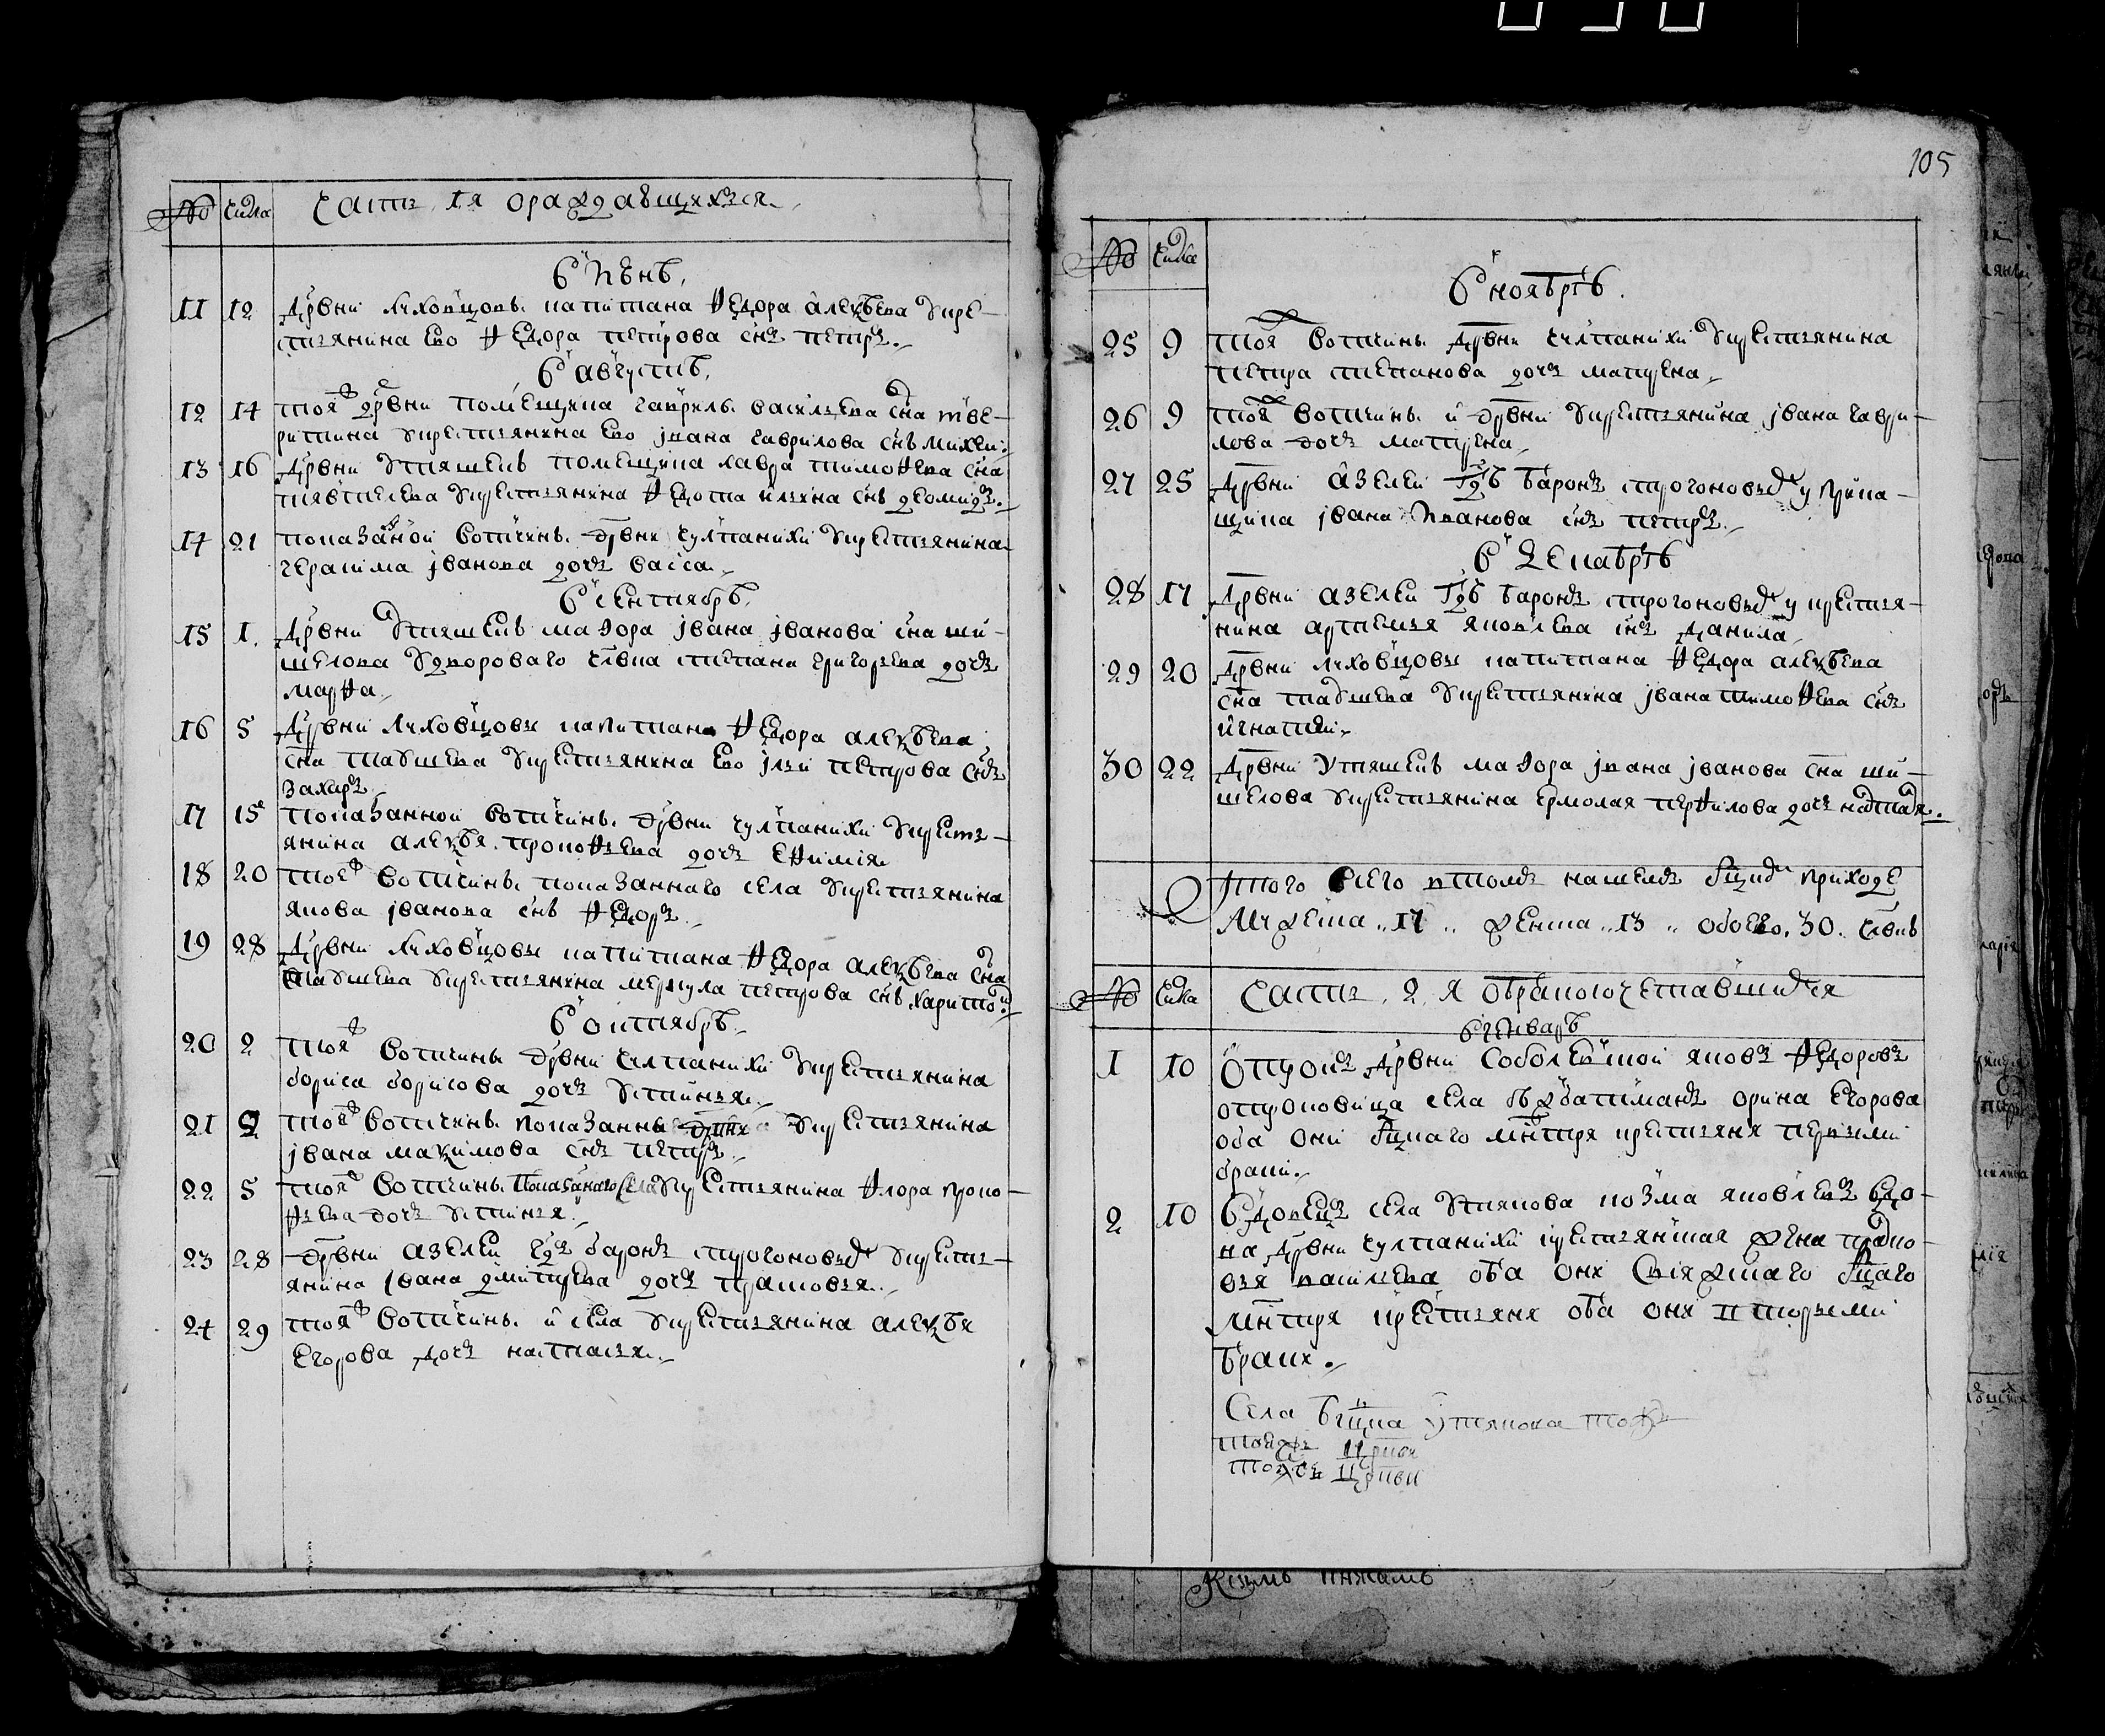 № числа Часть 1я ораждавшихъся
В Июнѣ
11 12 Дрвни Ляховцовъ капитана Федора алеѯѣева укре-
стьянина ево Федора петрова снъ петръ
В августѣ
12 14 тоя дрвни помещика гаврилы васильева сна тве-
ритина укрестьянина ево Iвана гаврилова снъ михеи
13 16 Дрвни утяшекъ помещика лавра тимофева сна
укрестьянина Федота ильина снъ деомидъ
14 21 показаной вотчины дрвни чулпанихи укрестьянина
герасима Iванова дочь васса
В сентябрѣ
15 1 Дрвни утяшекъ маэора Iвана Iванова сна ши-
шелова удворового члвка степана григорьева дочь
марфа
16 5 Дрвни Ляховцовы капитана Федора алеѯѣева
сна укрестьянина ево Iльи петрова снъ
захаръ
17 15 показанной вотчины дрвни чулпанихи укресть-
янина алеѯѣя прокофьева дочь ефимiя
18 20 тоея вотчины показанного села укрестьянина
якова Iванова снъ Федоръ
19 28 Дрвни Ляховцовы капитана Федора алеѯѣева сна
укрестьянина меркула петрова снъ харитонъ
В октябрѣ
20 2 тоя вотчины дрвни чулпанихи укрестьянина
бориса борисова дочь устинья
21 2 тоя вотчины показанны укрестьянина
Iвана маѯимова снъ петръ
22 5 тоя вотчины показанаго села укрестьянина Флора проко-
фьева дочь устинья
23 28 дрвни азелеи гдъ баронъ строгоновыхъ укресть-
янина Iвана дмитрева дочь прасковья
24 29 тоя вотчины и села укрестьянина алеѯѣя
егорова дочь настасья
105
№ числа
В ноябрѣ
25 9 тоя вотчины дрвни чулпанихи укрестьянина
петра степанова дочь матрена
26 9 тоя вотчины и дрвни укрестьянина Iвана гаври-
лова дочь матрена
27 25 Дрвни азелеи гдъ баронъ строгоновыхъ у прика-
щика Iвана Иванова снъ петръ
В декабрѣ
28 17 Дрвни азелеи гдъ баронъ строгоновыхъ у крестья-
нина артемья яковлева снъ данила
29 20 Дрвни Ляховцовы капитана Федора алеѯѣева
сна укрестьянина Iвана тимофева снъ
игнатеи
30 22 Дрвни утяшекъ маэора Iвана Iванова сна ши-
шелова укрестьянина ермолая перфилова дочь
Iтого всего втомъ нашемъ приходе
Мужеска 17 женска 13 обоего 30 члвкъ
№ числа Часть 2я обракосочетавшихся
В генварѣ
1 10 отрокъ дрвни яковъ Федоровъ
отроковица села орина егорова
оба они мнстря крестьяня первыми
браки
2 10 Вдовецъ села утякова козма яковлевъ вдо-
ва дрвни чулпанихи крестьянская жена праско-
вья васильева оба они Свiяжскаго
мнстря крестьяня оба они вторыми
браки
Села утякова